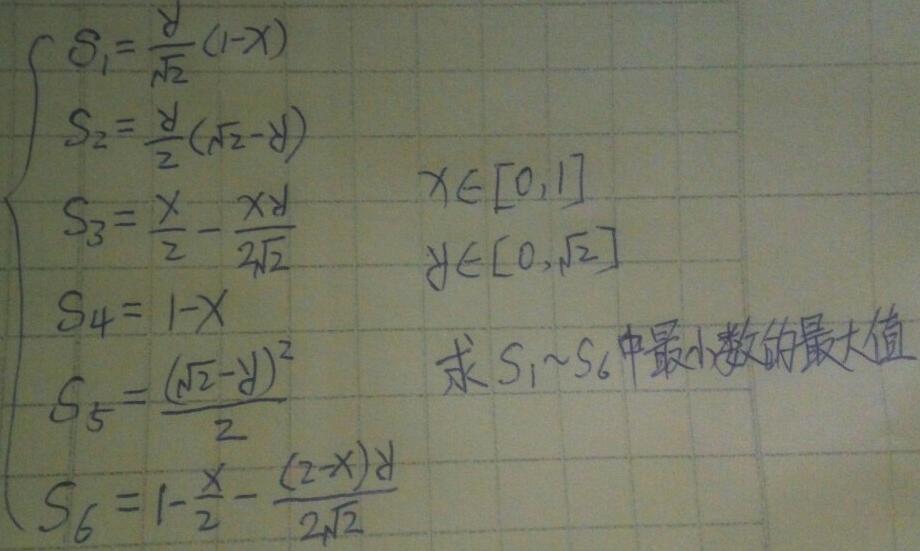 S₁ = y/√2 (1-x)
S₂ = y/2 (√2-y)
S₃ = x/2 - xy/2√2
S₄ = 1-x
S₅ = (√2-y)²/2
S₆ = 1 - x/2 - (2-x)y/2√2
x∈[0,1]
y∈[0,√2]
求S₁~S₆中最小数的最大值